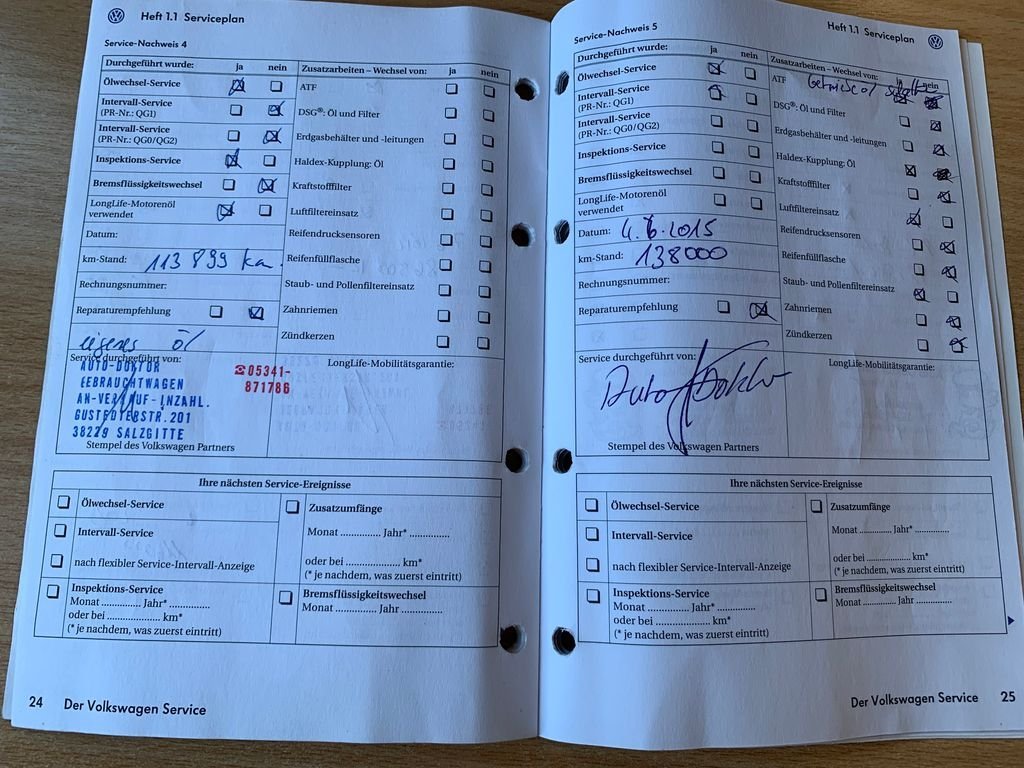 Heft 1.1 Serviceplan
Service-Nachweis 4
Durchgeführt wurde: ja nein
Ölwechsel-Service
Intervall-Service
(PR-Nr.: QG1)
Intervall-Service
(PR-Nr.: QG0/QG2)
Inspektions-Service
Bremsflüssigkeitswechsel
LongLife-Motorenöl
verwendet
Datum:
km-Stand: 113 899 km.
Rechnungsnummer:
Reparaturempfehlung
eigenes Öl
Zusatzarbeiten – Wechsel von: ja nein
ATF
DSG®: Öl und Filter
Erdgasbehälter und -leitungen
Haldex-Kupplung: Öl
Kraftstofffilter
Luftfiltereinsatz
Reifendrucksensoren
Reifenfüllflasche
Staub- und Pollenfiltereinsatz
Zahnriemen
Zündkerzen
Service durchgeführt von:
AUTO-DOKTOR
GEBRAUCHTWAGEN
AN-VERKAUF-INZAHL.
GUSTEDTERSTR.201
38229 SALZGITTE
☎05341-
871786
Stempel des Volkswagen Partners
LongLife-Mobilitätsgarantie:
Ihre nächsten Service-Ereignisse
Ölwechsel-Service
Intervall-Service
nach flexibler Service-Intervall-Anzeige
Inspektions-Service
Monat ............. Jahr* .............
oder bei ..................... km*
(* je nachdem, was zuerst eintritt)
Zusatzumfänge
Monat ............. Jahr* .............
oder bei ..................... km*
(* je nachdem, was zuerst eintritt)
Bremsflüssigkeitswechsel
Monat ............. Jahr .............
24 Der Volkswagen Service
Heft 1.1 Serviceplan
Service-Nachweis 5
Durchgeführt wurde: ja nein
Ölwechsel-Service
Intervall-Service
(PR-Nr.: QG1)
Intervall-Service
(PR-Nr.: QG0/QG2)
Inspektions-Service
Bremsflüssigkeitswechsel
LongLife-Motorenöl
verwendet
Datum: 4.6.2015
km-Stand: 138000
Rechnungsnummer:
Reparaturempfehlung
Zusatzarbeiten – Wechsel von: ja nein
ATF
DSG®: Öl und Filter
Erdgasbehälter und -leitungen
Haldex-Kupplung: Öl
Kraftstofffilter
Luftfiltereinsatz
Reifendrucksensoren
Reifenfüllflasche
Staub- und Pollenfiltereinsatz
Zahnriemen
Zündkerzen
Service durchgeführt von:
Auto Doktor
Stempel des Volkswagen Partners
LongLife-Mobilitätsgarantie:
Ihre nächsten Service-Ereignisse
Ölwechsel-Service
Intervall-Service
nach flexibler Service-Intervall-Anzeige
Inspektions-Service
Monat ............. Jahr* .............
oder bei ..................... km*
(* je nachdem, was zuerst eintritt)
Zusatzumfänge
Monat ............. Jahr* .............
oder bei ..................... km*
(* je nachdem, was zuerst eintritt)
Bremsflüssigkeitswechsel
Monat ............. Jahr .............
Der Volkswagen Service 25